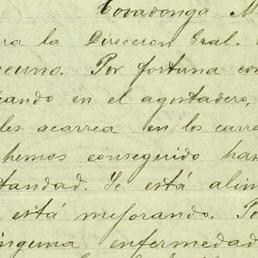 Covadonga M
ra la Direccion Gral.
Por fortuna con
cando en el agostadero,
les acarrea en los carre
hemos conseguido han
tandad. Se está alim
está mejorando. Po
inguna enfermedad